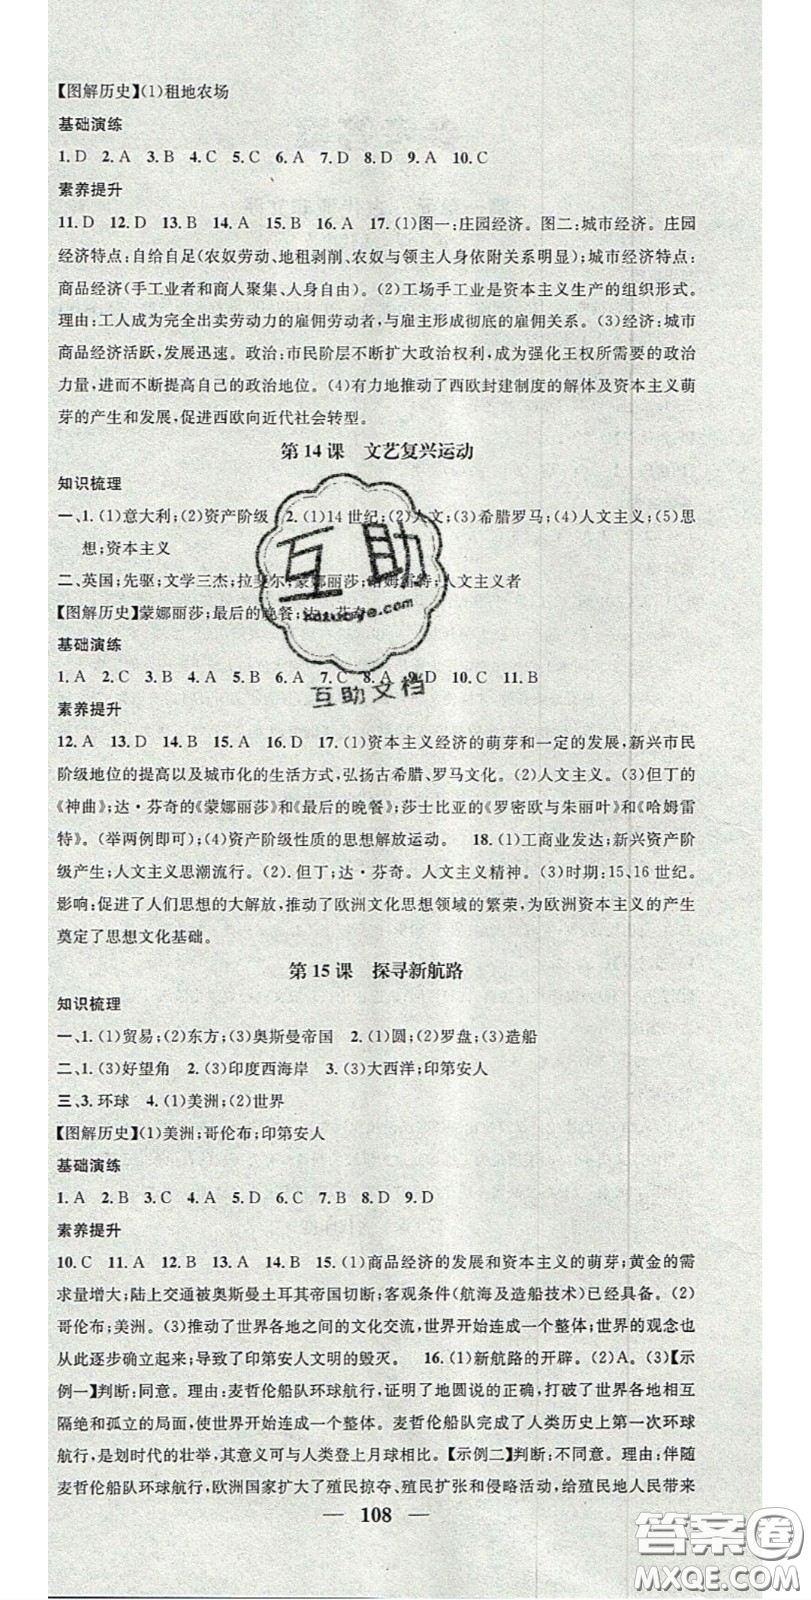 【图解历史】(1)租地农场
基础演练
1. D 2. A 3. B 4. C 5. C 6. A 7. D 8. D 9. A 10. C
素养提升
11. D 12. D 13. B 14. A 15. B 16. A 17. (1)图一:庄园经济。图二:城市经济。庄园
经济特点:自给自足(农奴劳动、地租剥削、农奴与领主人身依附关系明显);城市经济特点:
商品经济(手工业者和商人聚集、人身自由)。(2)工场手工业是资本主义生产的组织形式。
理由:工人成为完全出卖劳动力的雇佣劳动者,与雇主形成彻底的雇佣关系。(3)经济:城市
商品经济活跃,发展迅速。政治:市民阶层不断扩大政治权利,成为强化王权所需要的政治
力量,进而不断提高自己的政治地位。(4)有力地推动了西欧封建制度的解体及资本主义萌
芽的产生和发展,促进西欧向近代社会转型。
第14课 文艺复兴运动
知识梳理
一、1. (1)意大利;(2)资产阶级 2. (1)14世纪;(2)人文;(3)希腊罗马;(4)人文主义;(5)思
想;资本主义
二、英国;先驱;文学三杰;拉斐尔;蒙娜丽莎;哈姆雷特;人文主义者
【图解历史】蒙娜丽莎;最后的晚餐;达·芬奇
基础演练
1. A 2. C 3. B 4. C 5. A 6. A 7. C 8. A 9. D 10. C 11. B
素养提升
12. A 13. D 14. B 15. B 16. D 17. (1)资本主义经济的萌芽和一定的发展,新兴市民
阶级地位的提高以及城市化的生活方式,弘扬古希腊、罗马文化。(2)人文主义。(3)但丁的
《神曲》;达·芬奇的《蒙娜丽莎》和《最后的晚餐》;莎士比亚的《罗密欧与朱丽叶》和《哈姆雷
特》。(举两例即可);(4)资产阶级性质的思想解放运动。 18. (1)工商业发达;新兴资产阶
级产生;人文主义思潮流行。(2). 但丁;达·芬奇。人文主义精神。(3)时期:15、16世纪。
影响:促进了人们思想的大解放,推动了欧洲文化思想领域的繁荣,为欧洲资本主义的产生
奠定了思想文化基础。
第15课 探寻新航路
知识梳理
一、1. (1)贸易;(2)东方;(3)奥斯曼帝国 2. (1)圆;(2)罗盘;(3)造船
二、1. (3)好望角 2. (3)印度西海岸 3. (3)大西洋;印第安人
三、3. 环球 4. (1)美洲;(2)世界
【图解历史】(1)美洲;哥伦布;印第安人
基础演练
1. A 2. B 3. C 4. A 5. D 6. C 7. B 8. D 9. D
素养提升
10. C 11. A 12. B 13. A 14. B 15. (1)商品经济的发展和资本主义的萌芽;黄金的需
求量增大;陆上交通被奥斯曼土耳其帝国切断;客观条件(航海及造船技术)已经具备。(2)
哥伦布;美洲。(3)推动了世界各地之间的文化交流,世界开始连成一个整体;世界的观念也
从此逐步确立起来;导致了印第安人文明的毁灭。 16. (1)新航路的开辟。(2)A。(3)【示
例一】判断:同意。理由:麦哲伦船队环球航行,证明了地圆说的正确,打破了世界各地相互
隔绝和孤立的局面,使世界开始连成一个整体。麦哲伦船队完成了人类历史上第一次环球
航行,是划时代的壮举,其意义可与人类登上月球相比。【示例二】判断:不同意。理由:伴随
麦哲伦船队环球航行,欧洲国家扩大了殖民掠夺、殖民扩张和侵略活动,给殖民地人民带来
— 108 —
互助
互助文档
答案圈
MXQE.COM